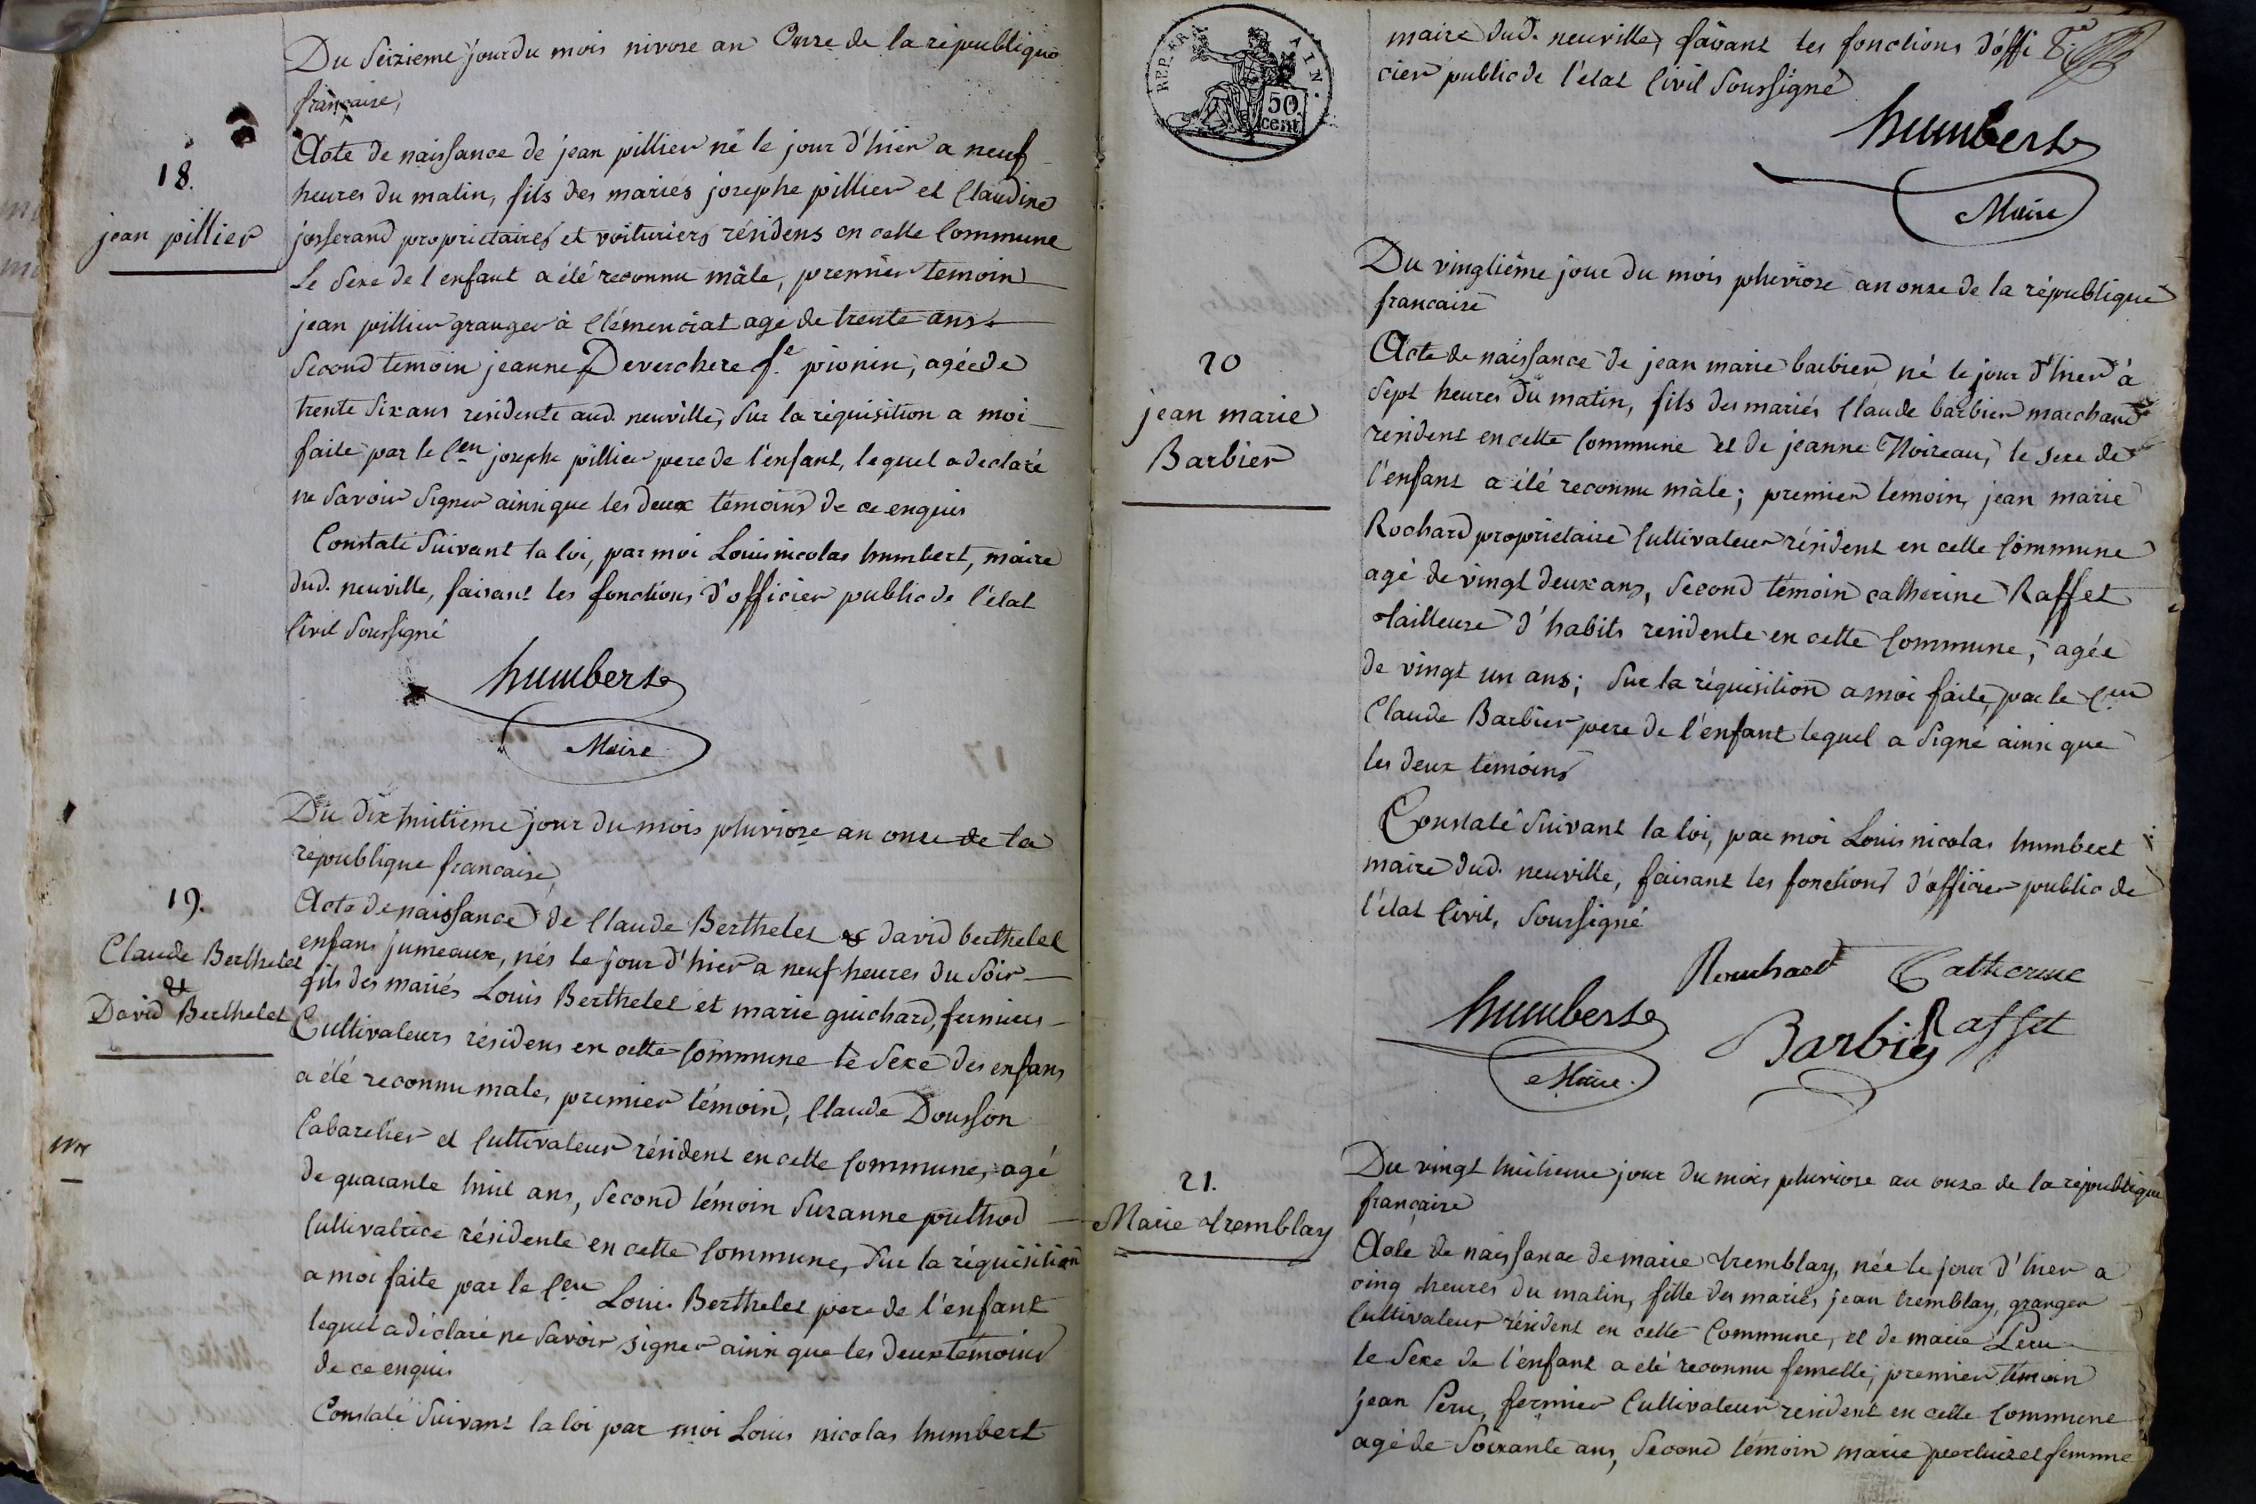 Du Seizieme jour du mois nivose an Onze de la republique
française,
18.
jean pillier
Acte de naissance de jean pillier né le jour d'hier a neuf
heures du matin, fils des mariés josephe pillier et Claudine
josserand proprietaires et voituriers résidens en cette Commune
Le Sexe de l'enfant a été reconnu mâle, premier temoin
jean pillier granger à Clémenciat agé de trente ans.
Second temoin jeanne Deverchere fe. pionin, agée de
trente Six ans residente aud. neuville, Sur la réquisition a moi
faite par le Cen josephe pillier pere de l'enfant, lequel a declaré
ne Savoir Signer ainsi que les deux témoins de ce enquis
Constaté Suivant la loi, par moi Louis nicolas humbert, maire
dud. neuville, faisant les fonctions d'officier public de l'état
Civil Soussigné
humbert
Maire
Du dix huitieme jour du mois pluviose an onze de la
république francaise,
19.
Claude Berthelet
&
David Berthelet
Acte de naissance de Claude Berthelet & david berthelet
enfans jumeaux, nés le jour d'hier a neuf heures du Soir
fils des mariés Louis Berthelet et marie guichard, fermiers
Cultivateurs résidens en cette Commune le Sexe des enfans
a été reconnu male, premier témoin, Claude Dousson
Cabaretier et Cultivateur résident en cette Commune, agé
de quarante huit ans, Second témoin Suzanne puthod
Cultivatrice résidente en cette Commune, Sur la réquisition
a moi faite par le Cen Louis Berthelet pere de l'enfant
lequel a déclaré ne Savoir signer ainsi que les deux temoins
de ce enquis
Constaté Suivant la loi par moi Louis nicolas humbert
REP. FRA. AIN.
50
cent
maire dud. neuville, faisant les fonctions d'offi
cier public de l'etat Civil Soussigné
humbert
Maire
Du vingtiéme jour du mois pluviose an onze de la république
francaise
20
jean marie
Barbier
Acte de naissance de jean marie barbier né le jour d'hier à
Sept heures du matin, fils des mariés Claude barbier marchand
résident en cette Commune et de jeanne Noireau, le sexe de
l'enfant a été reconnu mâle; premier temoin, jean marie
Rochard proprietaire Cultivateur résident en cette Commune
agé de vingt deux ans, Second témoin catherine Raffet
tailleuse d'habits residente en cette Commune, agée
de vingt un ans; Sur la réquisition a moi faite, par le Cen
Claude Barbier pere de l'enfant lequel a Signé ainsi que
les deux temoins
Constaté Suivant la loi, par moi Louis nicolas humbert
maire dud. neuville, faisant les fonctions d'officier public de
l'état Civil, Soussigné
Catherine
humbert
Barbier Raffet
Maire.
Du vingt huitieme jour du mois pluviose an onze de la république
française
21.
Marie tremblay
Acte de naissance de marie tremblay, née le jour d'hier a
cinq heures du matin, fille des mariés jean tremblay, granger
Cultivateur résident en cette Commune, et de marie Peru
le Sexe de l'enfant a été reconnu femelle; premier témoin
jean Peru, fermier Cultivateur resident en cette Commune
agé de Soixante ans, Second témoin marie pertuizet femme